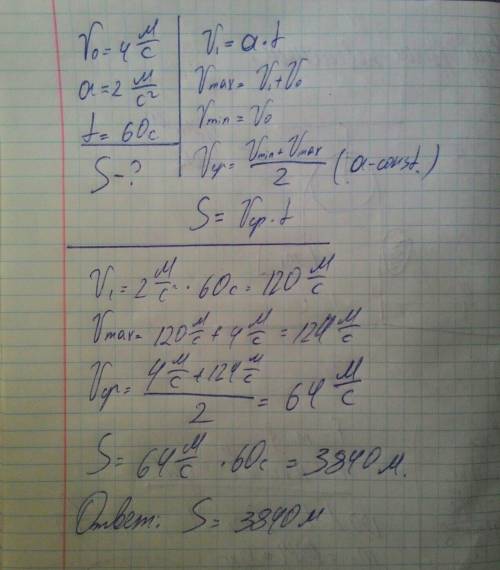 V₀ = 4 м/с
a = 2 м/с²
t = 60с
S - ?
V₁ = a · t
Vmax = V₁ + V₀
Vmin = V₀
Vср = (Vmin + Vmax)/2 (a - const.)
S = Vср · t
V₁ = 2 м/с² · 60с = 120 м/с
Vmax = 120 м/с + 4 м/с = 124 м/с
Vср = (4 м/с + 124 м/с)/2 = 64 м/с
S = 64 м/с · 60с = 3840 м.
Ответ: S = 3840 м